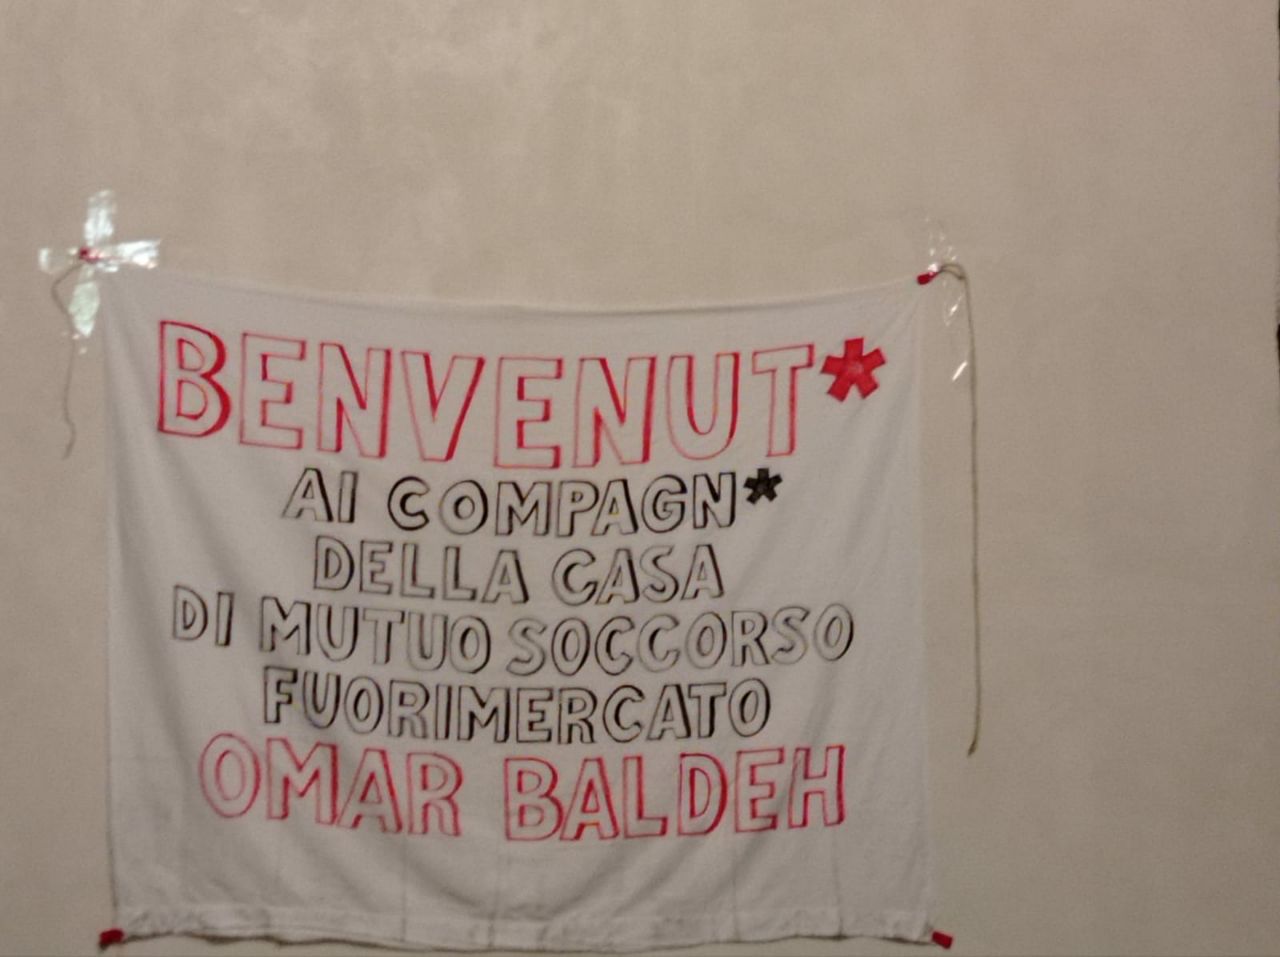 BENVENUT*
AI COMPAGN*
DELLA CASA
DI MUTUO SOCCORSO
FUORIMERCATO
OMAR BALDEH